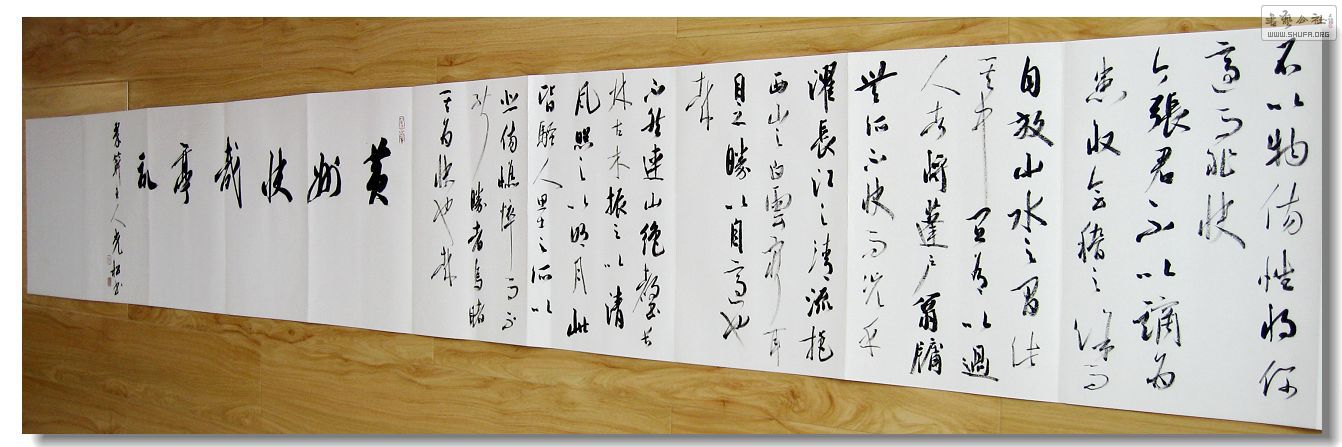 不以物傷性將何
適而非快
今張君不以謫為
患收會稽之餘而
自放山水之間此
其中宜有以過
人者將蓬户甕牖
無所不快而況乎
濯長江之清流挹
西山之白雲窮耳
目之勝以自適也
哉
不然連山絕壑長
林古木振之以清
風照之以明月此
皆騷人思士之所以
悲傷憔悴而不
能勝者烏睹
其為快也哉
黄州快哉亭記
主人光松書
书艺公社
WWW.SHUFA.ORG